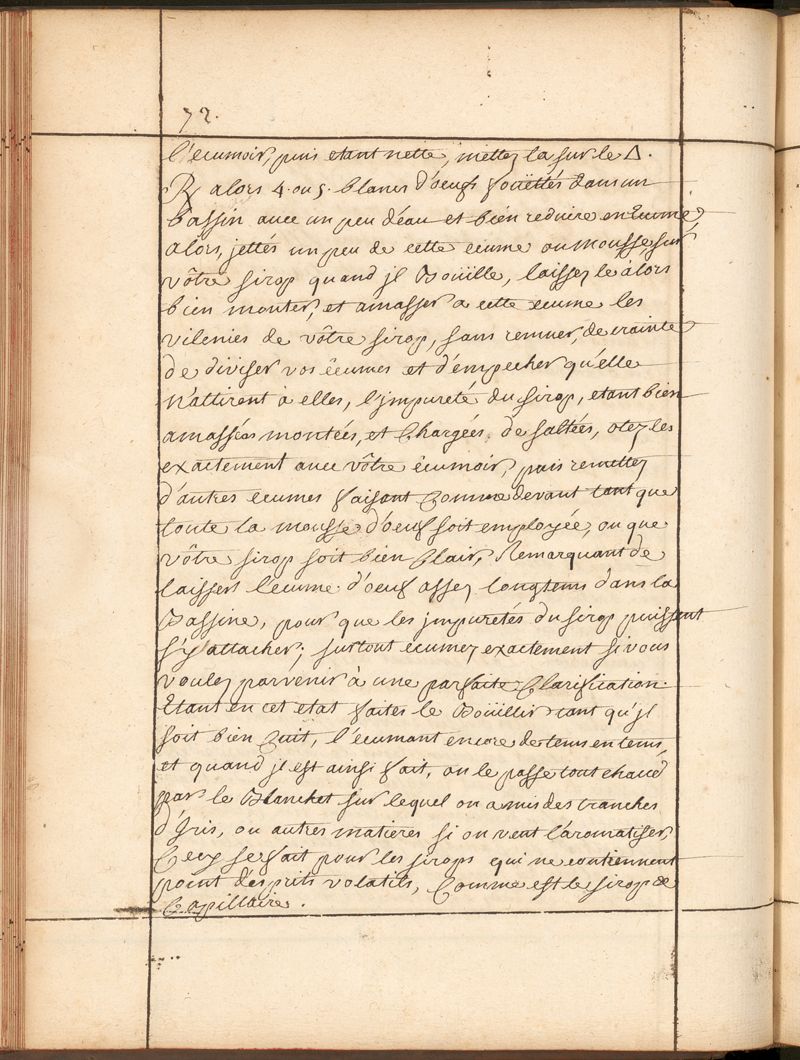 72.
l'ecumoir, puis etant nette, mettez la sur le △.
℞ alors 4. ou 5. blancs d'oeufs foüettés dans un
bassin avec un peu d'eau et bien reduire en Ecume,
alors, jettés un peu de cette ecume ou mousse, sur
vôtre sirop quand jl Boüille, laissez le àlors
bien monter, et amasser a cette ecume les
vilenies de vôtre sirop, sans remuer, de crainte
de diviser vos ècumes et d'empecher qu'elle
n'attirent à elles, l'jmpureté du sirop, etant bien
amassées montées, et Chargées de saltées, otez les
exactement avec vôtre ècumoir, puis remettez
d'autres ecumes faisant Comme devant tant que
toute la mousse d'oeuf soit employée, ou que
vôtre sirop soit bien Clair, Remarquant de
laissers l'ecume d'oeuf assez longtems dans la
Bassine, pour que les jmpuretés du sirop puissent
s'y attacher; surtout ecumez exactement si vous
voulez parvenir à une parfaite Clarification.
Etant en cet etat faites le Boüillir tant qu'jl
soit bien Cuit, l'ecumant encore de tems en tems,
et quand jl est ainsi fait, on le passe tout chaud
par le Blanchet sur lequel on a mis des tranches
d'Iris, ou autres matieres si on veut l'aromatiser
Cecy se fait pour les sirops qui ne contiennent
point d'esprits volatils, Comme est le sirop de
Capillaire.